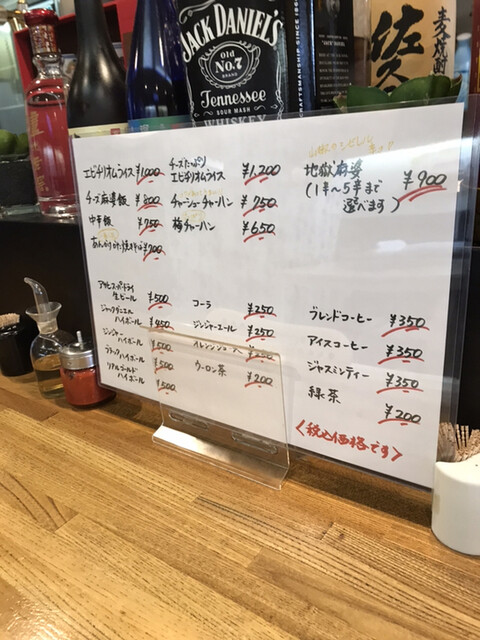 JACK DANIEL'S
Old
No. 7
Tennessee
SOUR MASH
WHISKEY
佐久
エビチリオムライス ¥1,000
チーズ麻婆飯 ¥800
中華飯 ¥750
あんかけかた焼そば ¥700
チーズたっぷり
エビチリオムライス ¥1,200
チャーシューチャーハン ¥750
梅チャーハン ¥650
地獄麻婆 ¥900
(1辛〜5辛まで
選べます)
アサヒスーパードライ
生ビール ¥500
ジャックダニエル
ハイボール ¥450
ジンジャー
ハイボール ¥500
ブラックハイボール ¥500
リアルゴールド
ハイボール ¥500
コーラ ¥250
ジンジャエール ¥250
オレンジジュース
ウーロン茶 ¥200
ブレンドコーヒー ¥350
アイスコーヒー ¥350
ジャスミンティー ¥350
緑茶 ¥200
<税込価格です>